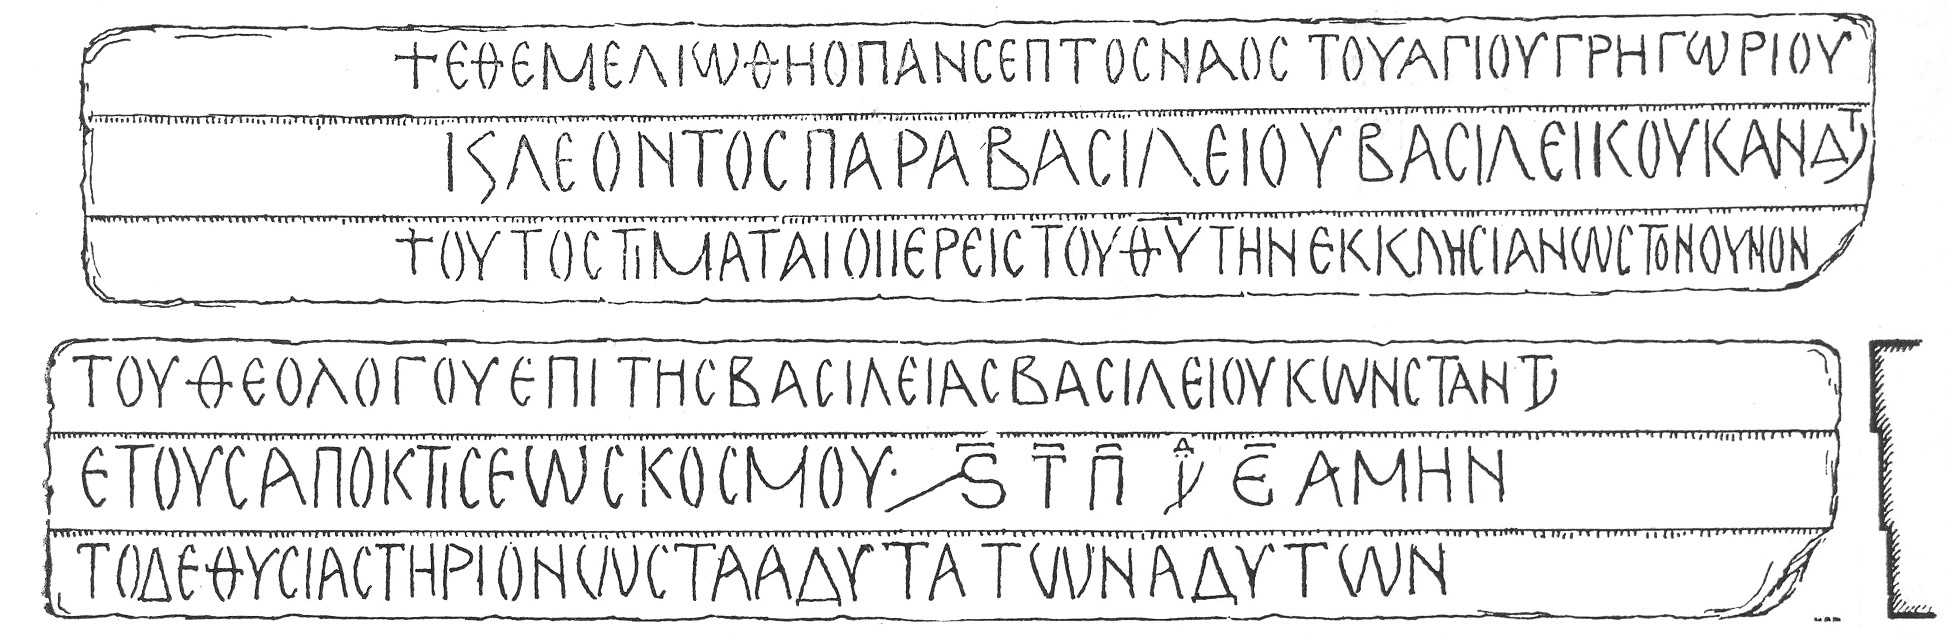 +ΕΘΕΜΕΛΙΩΘΗΟΠΑΝCΕΠΤΟCΝΑΟC ΤΟΥΑΓΙΟΥΓΡΗΓΩΡΙΟΥ
ΙSΛΕΟΝΤΟCΠΑΡΑΒΑCΙΛΕΙΟΥΒΑCΙΛΕΙΙΚΟΥΚΑΝΔΤ
+ΟΥΤΟCΤΙΜΑΤΑΙΟΙΙΕΡΕΙCΤΟΥΘΥΤΗΝΕΚΚΛΗCΙΑΝΩCΤΟΝΟΥΝΟΝ
ΤΟΥΘΕΟΛΟΓΟΥΕΠΙ ΤΗCΒΑCΙΛΕΙΑCΒΑCΙΛΕΙΟΥΚΩΝCΤΑΝΤ
ΕΤΟΥCΑΠΟΚΤΙCΕΩCΚΟCΜΟΥ· S Τ Π Ε ΑΜΗΝ
ΤΟΔΕΘΥCΙΑCΤΗΡΙΟΝΩCΤΑΑΔΥΤΑΤΩΝΑΔΥΤΩΝ